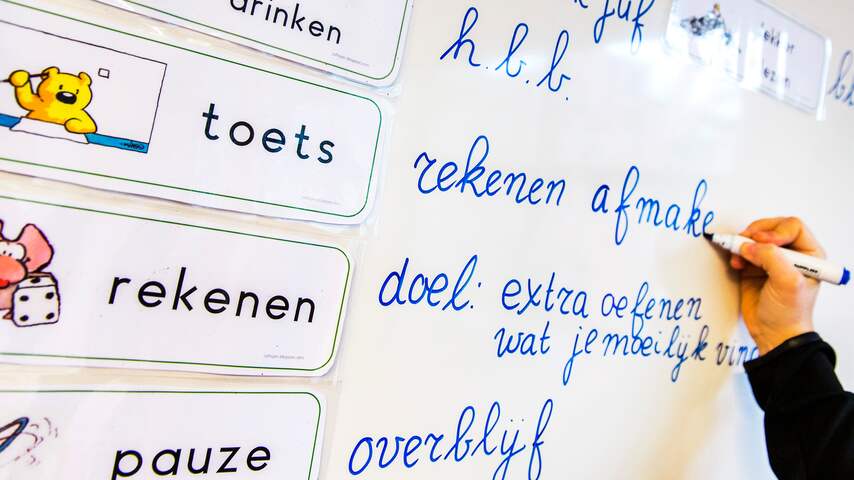 drinken
toets
rekenen
pauze
juf
h.b.b.
rekenen afmake
doel: extra oefenen
wat je moeilijk vin
overblijf